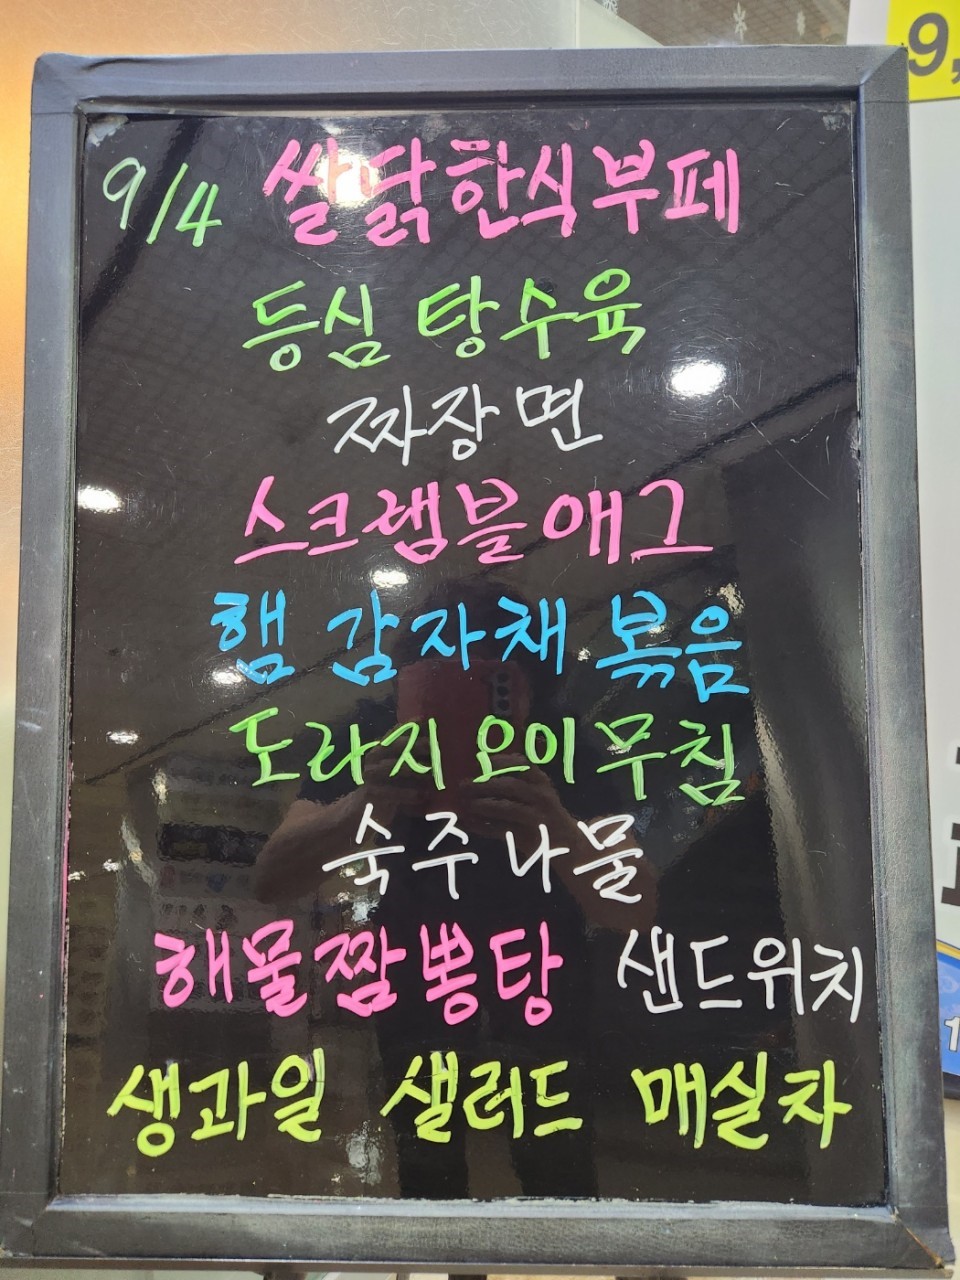 9,
9/4 쌀닭한식부페
등심 탕수육
짜장면
스크램블애그
햄 감자채 볶음
도라지 오이무침
숙주나물
해물짬뽕탕 샌드위치
생과일 샐러드 매실차
1